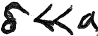 δ << a